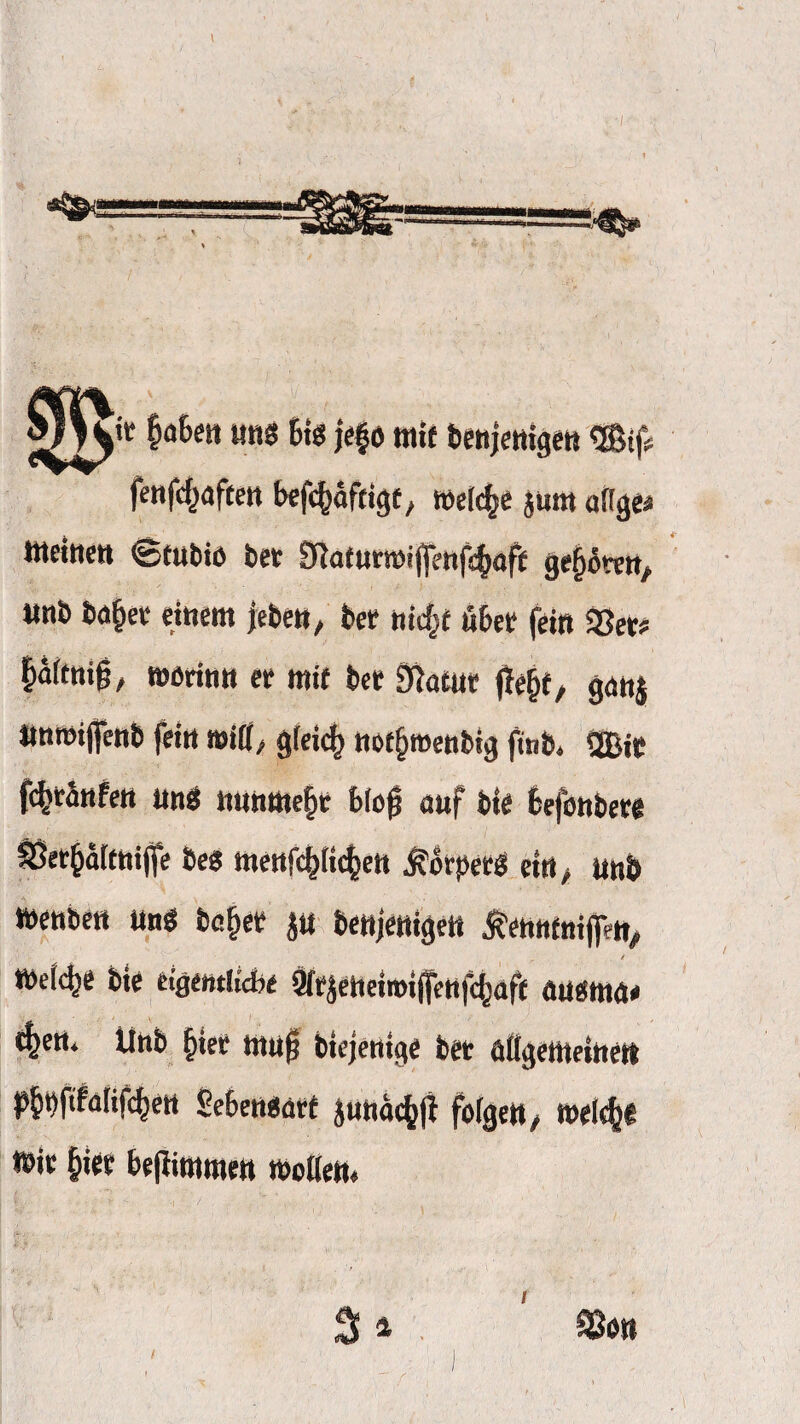 Wir haben uns bis jetzo mit denjenigen Wiſ⸗
ſenſchaften beſchäftigt, welche zum allge⸗
meinen Studio der Naturwiſſenſchaft gehören,
und daher einem jeden, der nicht über ſein Ver⸗
hältniß, worinn er mit der Natur ſteht, ganz
unwiſſend ſein will, gleich nothwendig ſind. Wir
ſchränken uns nunmehr bloß auf die beſondere
Verhältniſſe des menſchlichen Körpers ein, und
wenden uns daher zu denjenigen Kenntniſſen,
welche die eigentliche Arzeneiwiſſenſchaft ausma⸗
chen. Und hier muß diejenige der allgemeinen
phyſikaliſchen Lebensart zunächſt folgen, welche
wir hier beſtimmen wollen.
J 2 Von